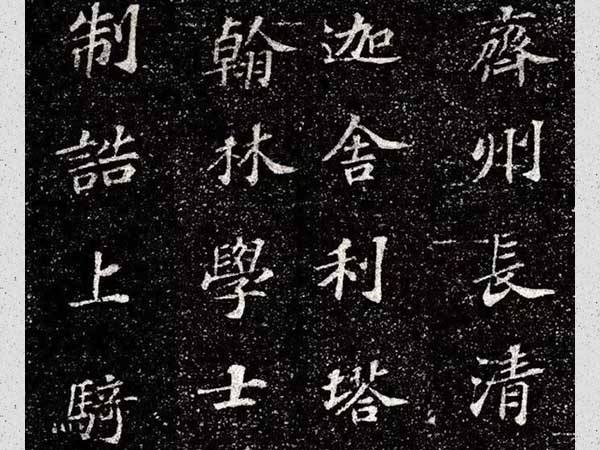 齊州長清
迦舍利塔
翰林學士
制誥上騎